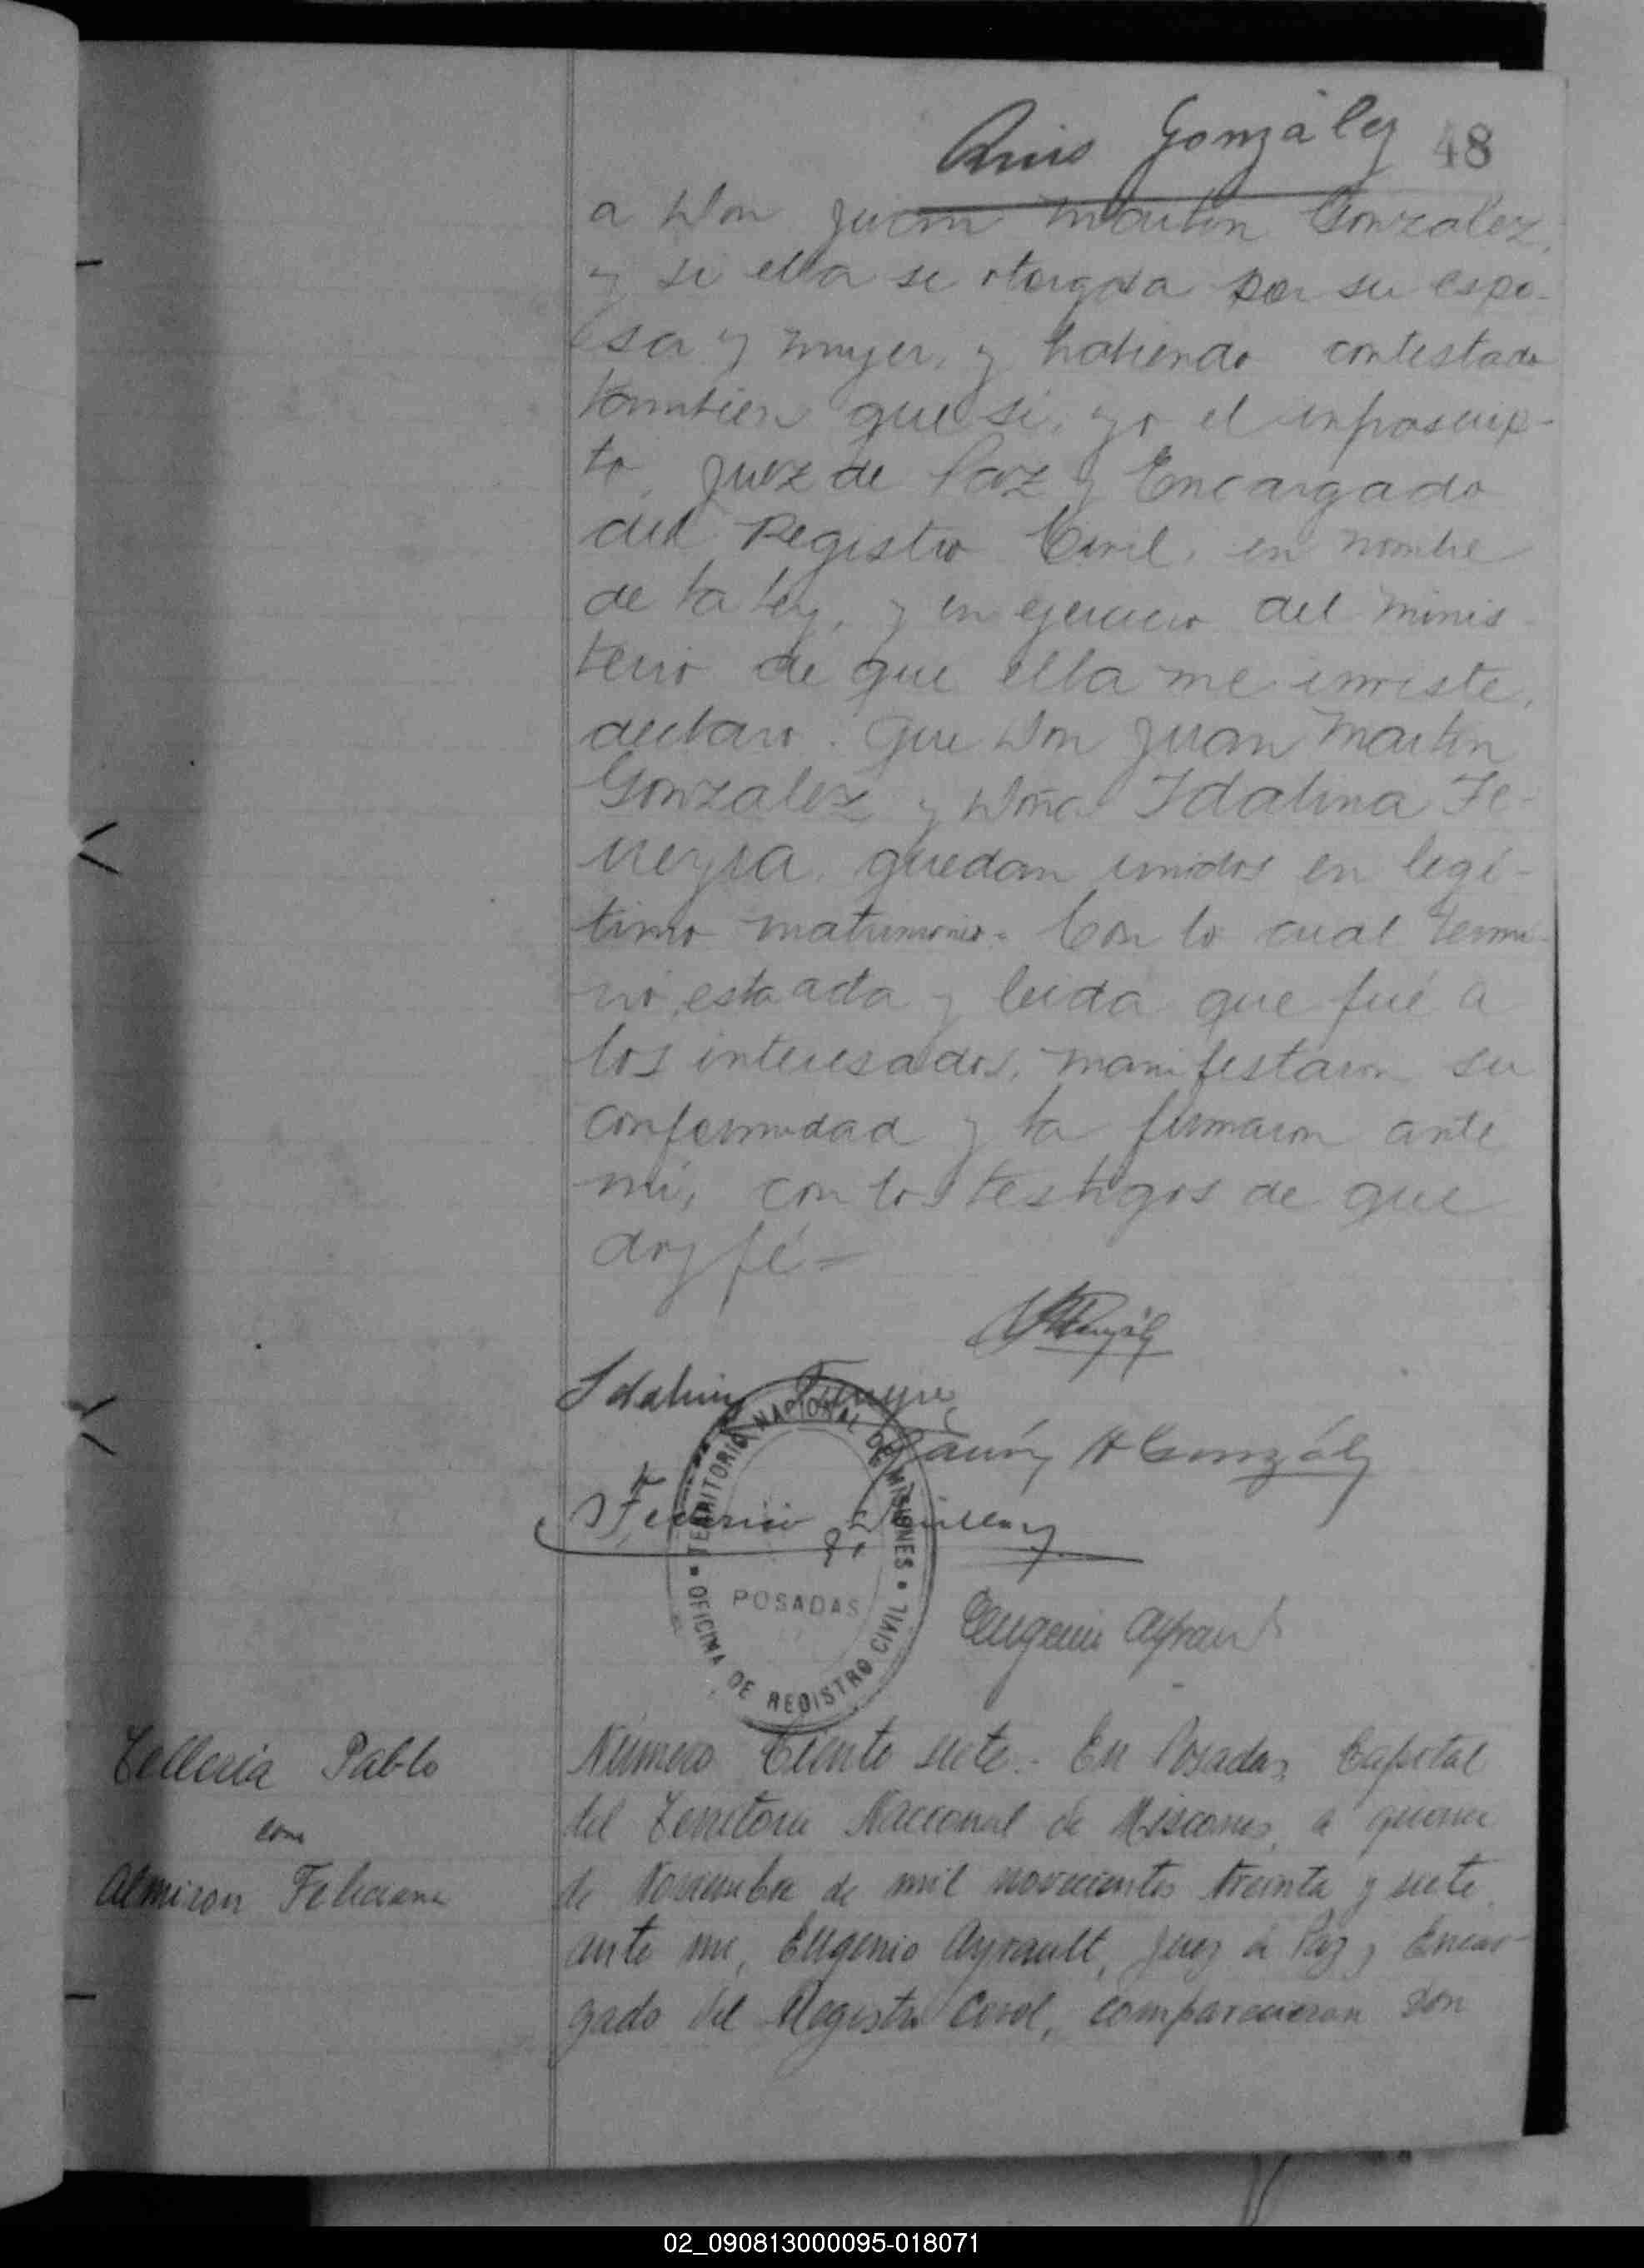 Luis González 48
a Don Juan Martin Gonzalez,
y si ella se otorgaba por su espo-
sa y mujer, y habiendo contestado
tambien que si, yo el infrascrip-
to, Juez de Paz y Encargado
del Registro Civil, en nombre
de la ley, y en ejercicio del minis-
terio de que ella me inviste,
declaro. Que Don Juan Martin
Gonzalez y Doña Idalina Fe-
rreyra quedan unidos en legi-
timo matrimonio. Con lo cual termi-
nó, esta acta y leida que fué a
los interesados, manifestaron su
conformidad y la firmaron ante
mi, con los testigos de que
doy fé=
Idalina Ferreyra
González
Federico
TERRITORIO NACIONAL DE MISIONES
POSADAS
OFICINA DE REGISTRO CIVIL
Eugenio Ayrault
Telleria Pablo
con
Almiron Feliciana
Número Ciento siete.- En Posadas, Capital
del Territorio Nacional de Misiones, a quince
de Noviembre de mil novecientos treinta y siete,
ante mi, Eugenio Ayrault, Juez de Paz y Encar-
gado del Registro Civil, comparecieron don
02_090813000095-018071